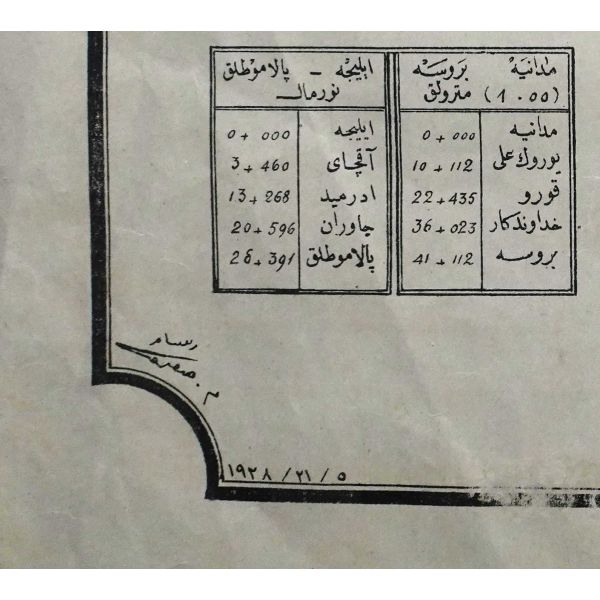 مدانیه بروسه
(1.00) مترولق
مدانیه 0+000
یوروك علی 10+112
قورو 22+435
خداوندکار 36+023
بروسه 41+112
ایلیجه - پالاموطلق
نورمال
ایلیجه 0+000
آقچای 3+460
ادرمید 13+268
چاوران 20+596
پالاموطلق 28+391
رسام
م.
١٩٢٨/٢١/٥